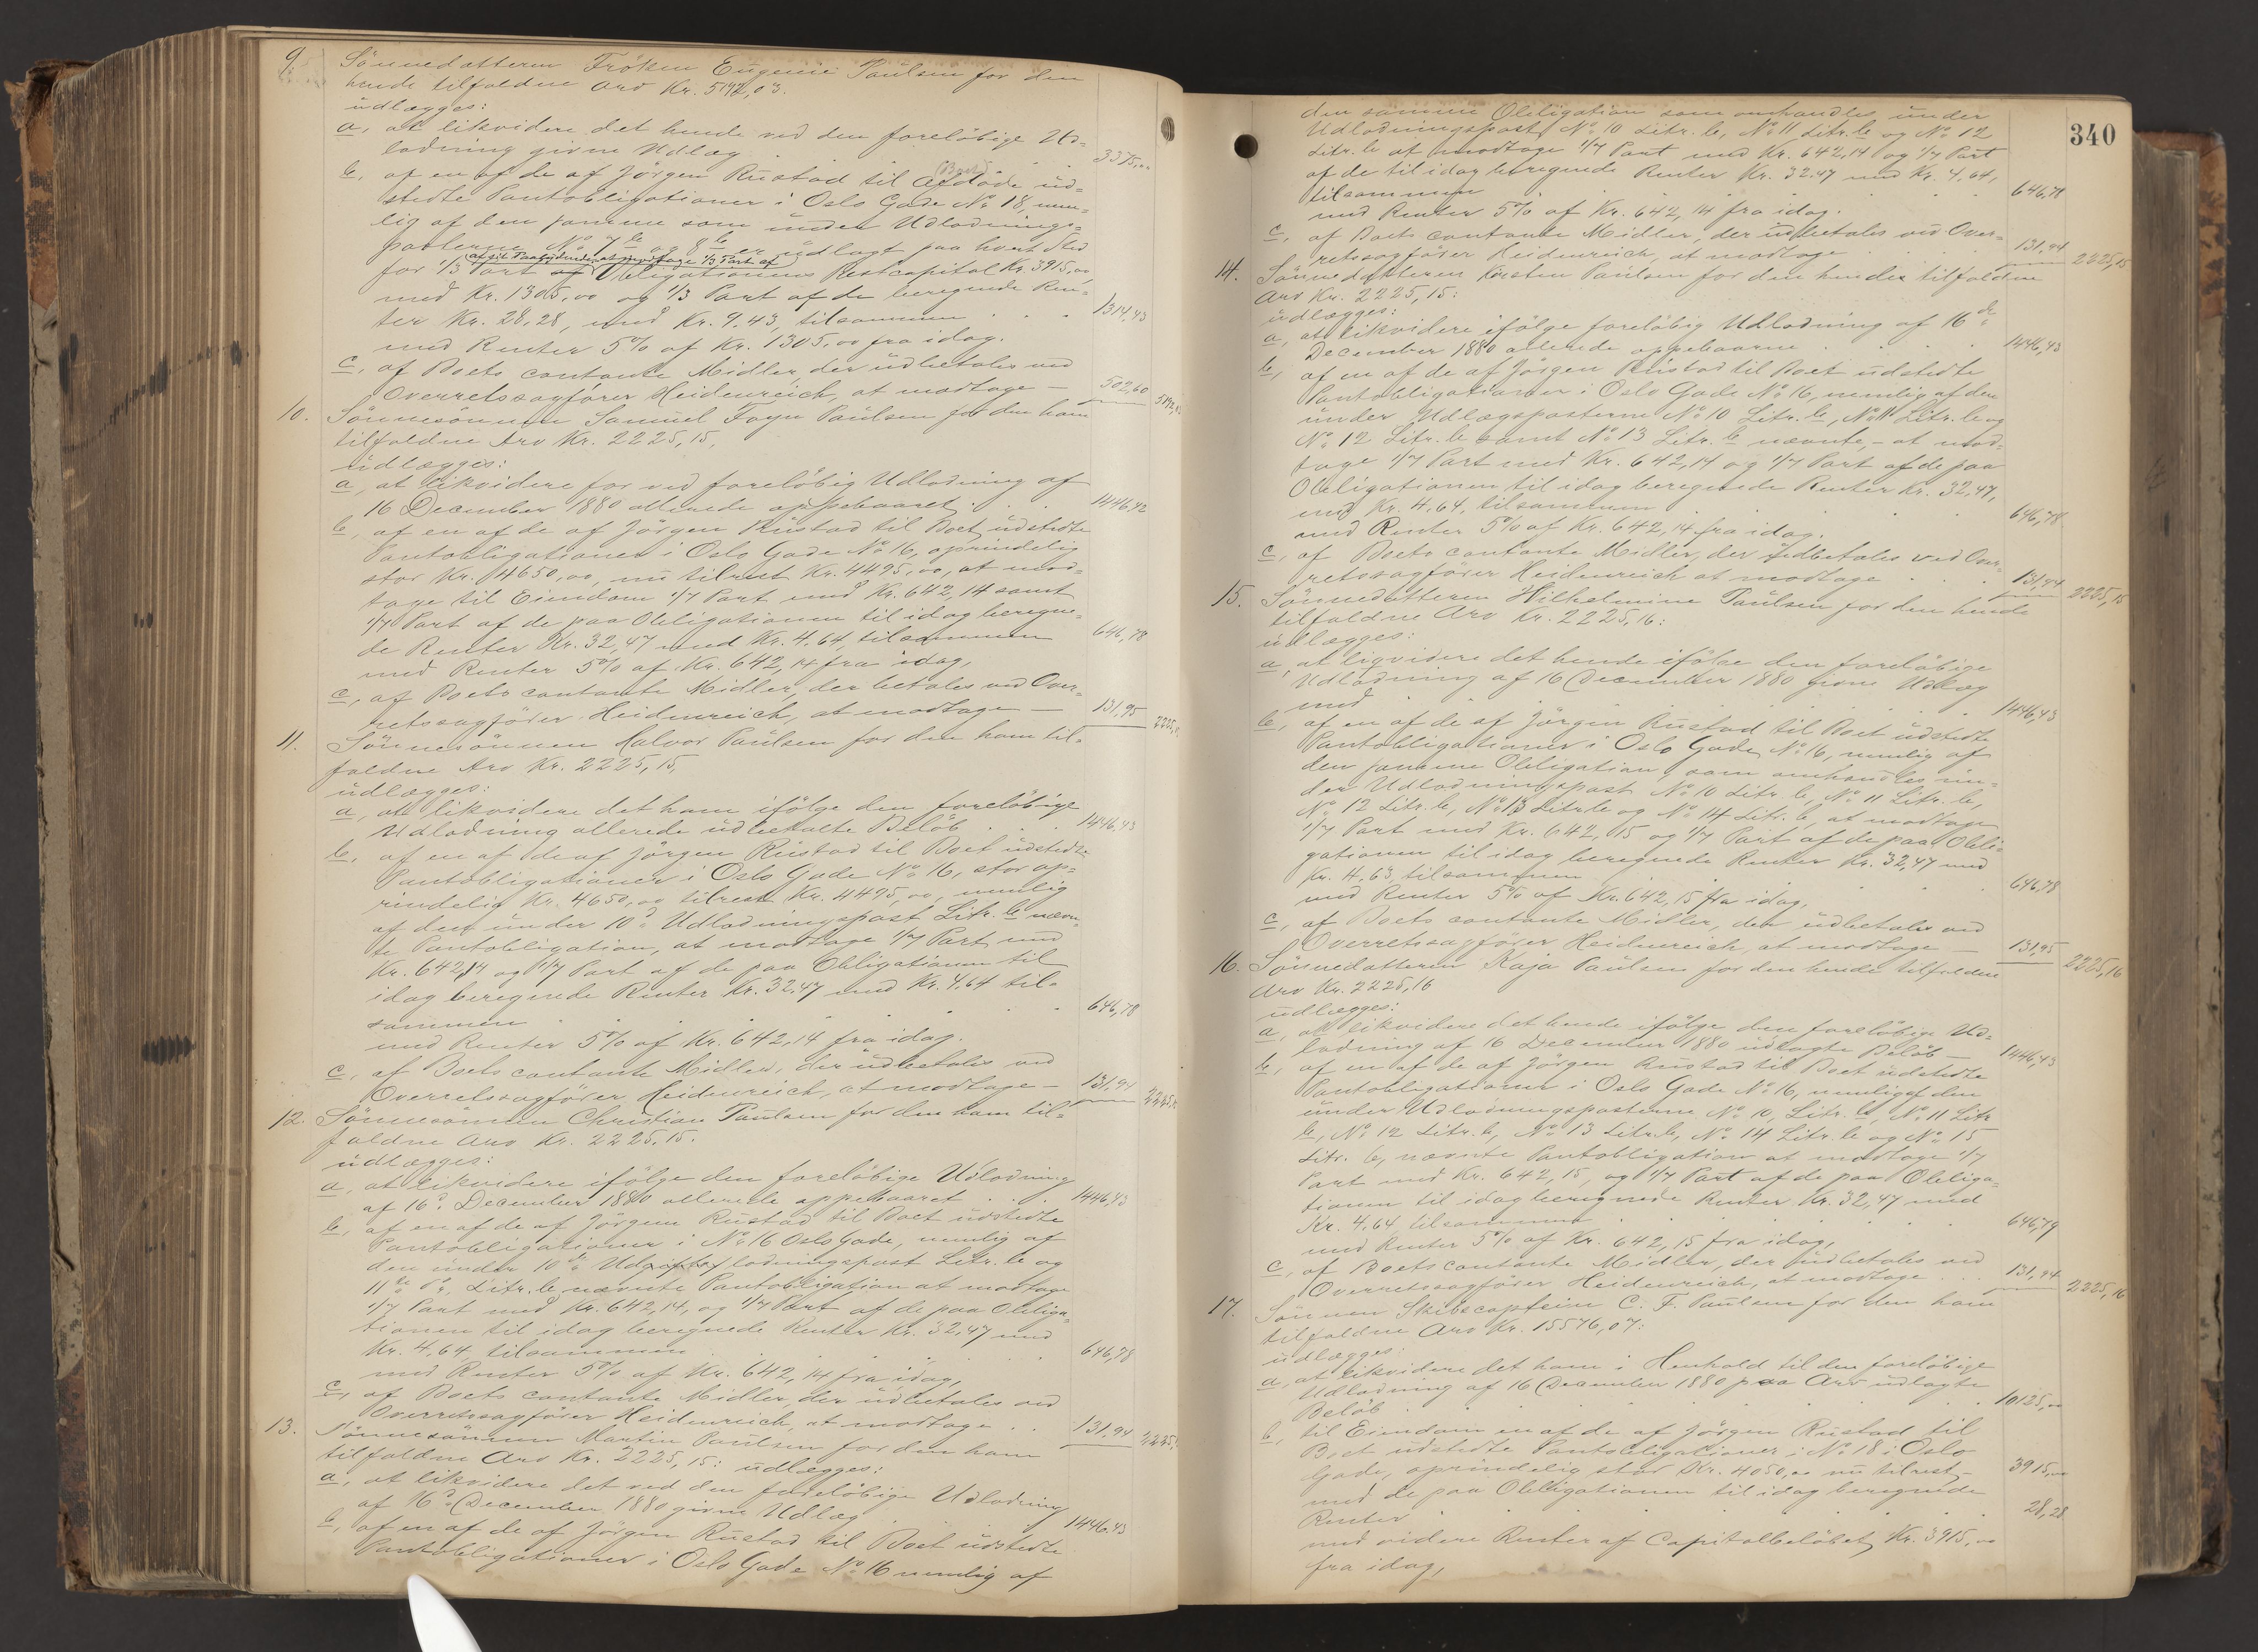 9. Sönnedatteren Fröken Eugenie Paulsen for den
hende tilfaldne Arv Kr. 5192,03.
udlægges:
a, at likvidere det hende ved den foreløbige Ud-
lodning givne Udlæg . 3375,00
b, af en af de af Jörgen Rustad til Afdøde (Boet) ud-
stedte Pantobligationer i Oslo Gade No 18, nem-
lig af den samme som under Udlodnings-
posterne No 7 b og 8 b er udlagt paa hvert Sted
for 1/3 Part af Obligationens Restcapital Kr. 3915,00
med Kr. 1305,00 og 1/3 Part af de beregnede Ren-
ter Kr. 28,28, med Kr. 9,43, tilsammen . . . 1314,43
med Renter 5% af Kr. 1305,00 fra idag.
c, af Boets contante Midler, der udbetales ved
Overretssagfører Heidenreich, at modtage — 502,60 5192,03
10. Sönnesönnen Samuel Foyn Paulsen for den ham
tilfaldne Arv Kr. 2225,15,
udlægges:
a, at likvidere for ved foreløbig Udlodning af
16 December 1880 allerede oppebaaret . . 1446,42
b, af en af de af Jörgen Rustad til Boet udstedte
Pantobligationer i Oslo Gade No 16, oprindelig
stor Kr. 4650,00, nu tilrest Kr. 4495,00, at mod-
tage til Eiendom 1/7 Part med Kr. 642,14 samt
1/7 Part af de paa Obligationen til idag beregne-
de Renter Kr. 32,47 med Kr. 4,64, tilsammen 646,78
med Renter 5% af Kr. 642,14 fra idag,
c, af Boets contante Midler, der betales ved Over-
retssagfører Heidenreich, at modtage — 131,95 2225,15
11. Sönnesönnen Halvor Paulsen for den ham til-
faldne Arv Kr. 2225,15,
udlægges:
a, at likvidere det ham ifølge den foreløbige
Udlodning allerede udbetalte Beløb . . . 1446,43
b, af en af de af Jörgen Rustad til Boet udstedte
Pantobligationer i Oslo Gade No 16, stor op-
rindelig Kr. 4650,00 tilrest Kr. 4495,00, nemlig
af den under 10de Udlodningspost Litr. b nævn-
te Pantobligation, at modtage 1/7 Part med
Kr. 642,14 og 1/7 Part af de paa Obligationen til
idag beregnede Renter Kr. 32,47 med Kr. 4,64 til-
sammen . . . . . . 646,78
med Renter 5% af Kr. 642,14 fra idag.
c, af Boets contante Midler, der udbetales ved
Overretssagfører Heidenreich, at modtage — 131,94 2225,15
12. Sönnesönnen Christian Paulsen for den ham til-
faldne Arv Kr. 2225,15.
udlægges:
a, at likvidere ifølge den foreløbige Udlodning
af 16de December 1880 allerede oppebaaret . . . 1446,43
b, af en af de af Jörgen Rustad til Boet udstedte
Pantobligationer i No 16 Oslo Gade, nemlig af
den under 10de Udlodningspost Litr. b og
11te do Litr. b nævnte Pantobligation at modtage
1/7 Part med Kr. 642,14, og 1/7 Part af de paa Obliga-
tionen til idag beregnede Renter Kr. 32,47 med
Kr. 4,64 tilsammen . . . . . . 646,78
med Renter 5% af Kr. 642,14 fra idag,
c, af Boets contante Midler, der udbetales ved
Overretssagfører Heidenreich, at modtage . . 131,94 2225,15
13. Sönnesönnen Martin Paulsen for den ham
tilfaldne Arv Kr. 2225,15: udlægges:
a, at likvidere det ved den foreløbige Udlodning
af 16de December 1880 givne Udlæg . . . 1446,43
b, af en af de af Jörgen Rustad til Boet udstedte
Pantobligationer i Oslo Gade No 16 nemlig af
340
den samme Obligation som omhandles under
Udlodningspost No 10 Litr. b, No 11 Litr. b og No 12
Litr. b at modtage 1/7 Part med Kr. 642,14 og 1/7 Part
af de til idag beregnede Renter Kr. 32,47 med Kr. 4,64,
tilsammen . . . . . . 646,78
med Renter 5% af Kr. 642,14 fra idag.
c, af Boets contante Midler, der udbetales ved Over-
retssagfører Heidenreich, at modtage . . . 131,94 2225,15
14. Sönnedatteren Kirsten Paulsen for den hende tilfaldne
Arv Kr. 2225,15:
udlægges:
a, at likvidere ifølge foreløbig Udlodning af 16de
December 1880 allerede oppebaarne . . . . 1446,43
b, af en af de af Jörgen Rustad til Boet udstedte
Pantobligationer i Oslo Gade No 16, nemlig af den
under Udlægsposterne No 10 Litr. b, No 11 Litr. b og
No 12 Litr. b samt No 13 Litr. b nævnte, - at mod-
tage 1/7 Part med Kr. 642,14 og 1/7 Part af de paa
Obligationen til idag beregnede Renter Kr. 32,47,
med Kr. 4,64, tilsammen . . . . . 646,78
med Renter 5% af Kr. 642,14 fra idag.
c, af Boets contante Midler, der udbetales ved Over-
retssagfører Heidenreich at modtage . . . 131,94 2225,15
15. Sönnedatteren Wilhelmine Paulsen for den hende
tilfaldne Arv Kr. 2225,16:
udlægges:
a, at liqvidere det hende ifølge den foreløbige
Udlodning af 16 December 1880 givne Udlæg
med . . . . . . . 1446,43
b, af en af de af Jörgen Rustad til Boet udstedte
Pantobligationer i Oslo Gade No 16, nemlig af
den samme Obligation, som omhandles un-
der Udlodningspost No 10 Litr. b, No 11 Litr. b,
No 12 Litr. b, No 13 Litr. b og No 14 Litr. b, at modtage
1/7 Part med Kr. 642,15 og 1/7 Part af de paa Obli-
gationen til idag beregnede Renter Kr. 32,47 med
Kr. 4,63, tilsammen . . . . . . 646,78
med Renter 5% af Kr. 642,15 fra idag,
c, af Boets contante Midler, der udbetales ved
Overretssagfører Heidenreich, at modtage — 131,95 2225,16
16. Sönnedatteren Kaja Paulsen for den hende tilfaldne
Arv Kr. 2225,16
udlægges:
a, at likvidere det hende ifølge den foreløbige Ud-
lodning af 16 December 1880 udlagte Beløb — 1446,43
b, af en af de af Jörgen Rustad til Boet udstedte
Pantobligationer i Oslo Gade No 16, nemlig af den
under Udlodningsposterne No 10, Litr. b, No 11 Litr
b, No 12 Litr. b, No 13 Litr. b, No 14 Litr. b og No 15
Litr. b, nævnte Pantobligation at modtage 1/7
Part med Kr. 642,15, og 1/7 Part af de paa Obliga-
tionen til idag beregnede Renter Kr. 32,47 med
Kr. 4,64, tilsammen . . . . . . 646,79
med Renter 5% af Kr. 642,15 fra idag,
c, af Boets contante Midler, der udbetales ved
Overretssagfører Heidenreich, at modtage . . . 131,94 2225,16
17. Sönnen Skibscaptein C. F. Paulsen for den ham
tilfaldne Arv Kr. 15576,07:
udlægges:
a, at likvidere det ham i Henhold til den foreløbige
Udlodning af 16 December 1880 paa Arv udlagte
Beløb . . . . . . . . 10125,00
b, til Eiendom en af de af Jörgen Rustad til
Boet udstedte Pantobligationer i No 18 i Oslo
Gade, oprindelig stor Kr. 4050,00 nu tilrest — 3915,00
med de paa Obligationen til idag beregnede
Renter . . . . . . . 28,28
med videre Renter af Capitalbeløbet Kr. 3915,00
fra idag,